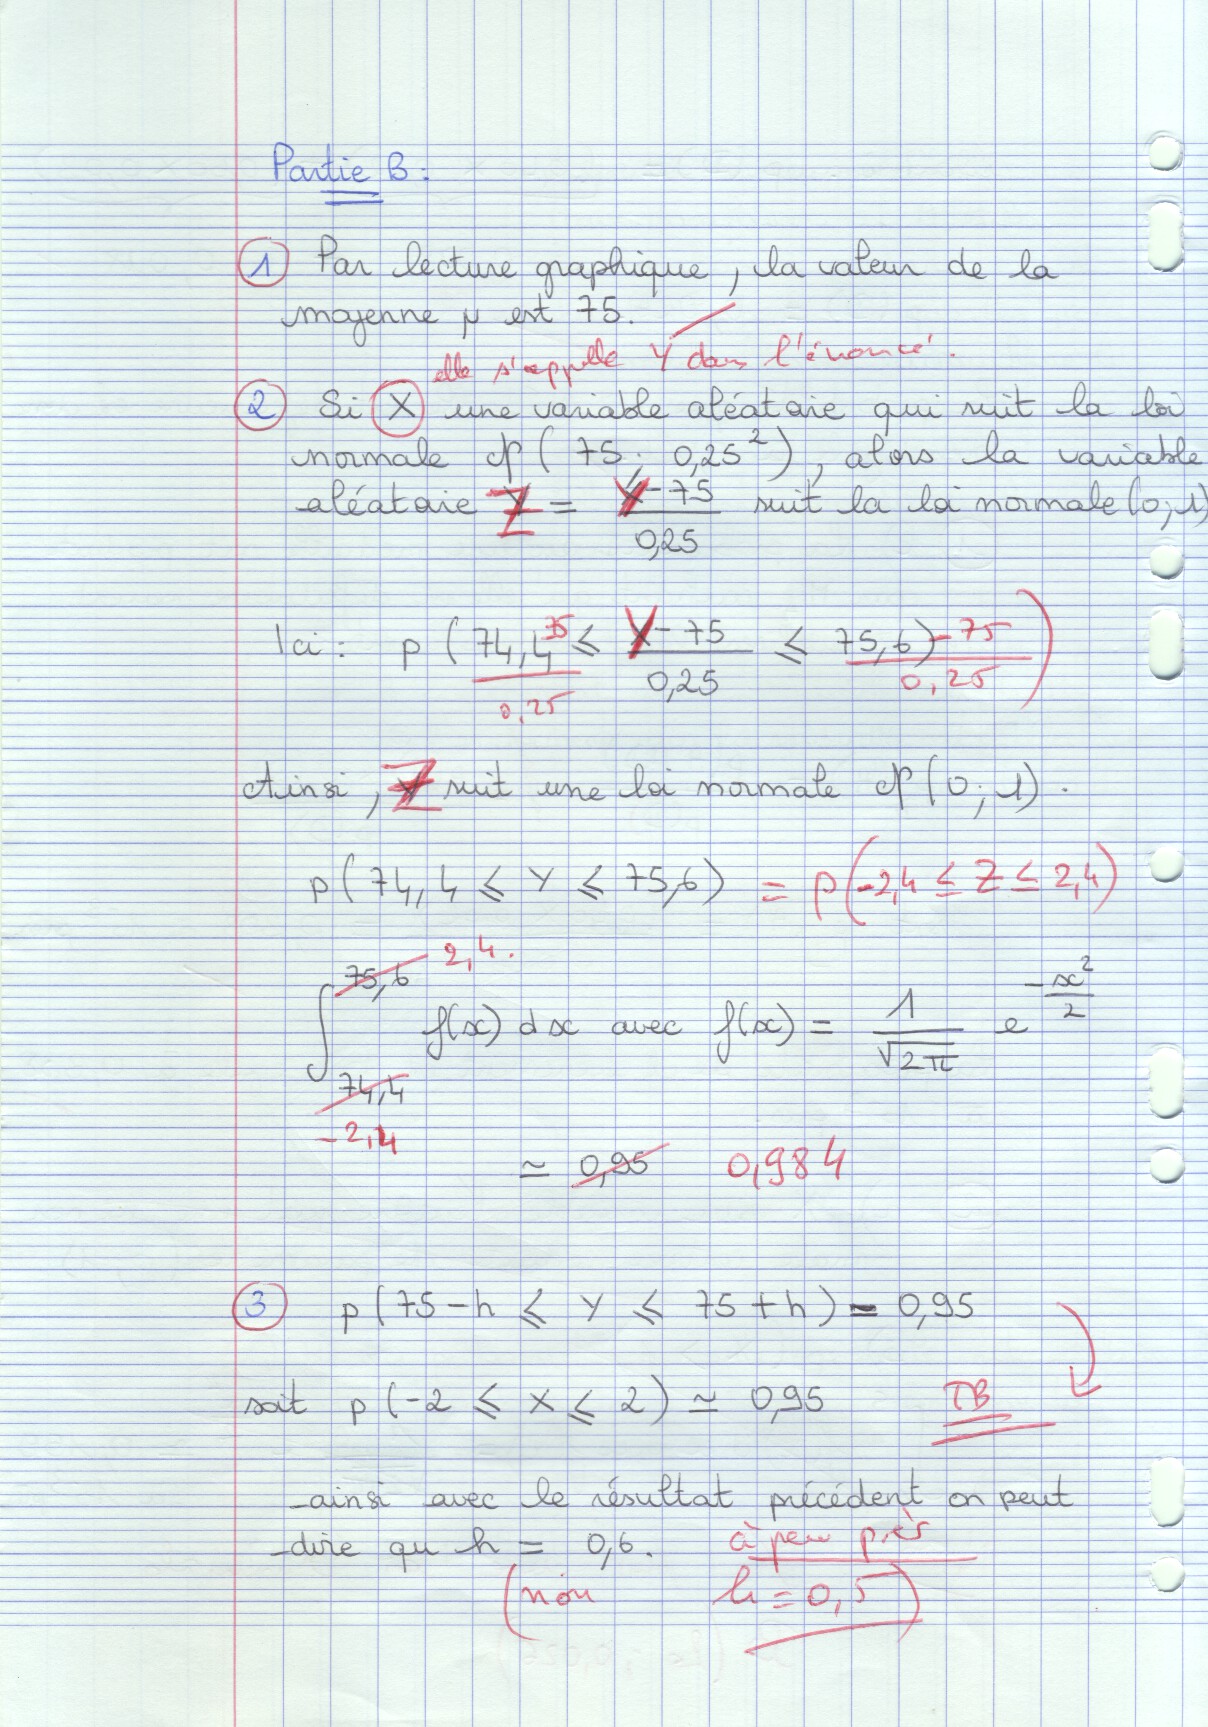 Partie B :
① Par lecture graphique, la valeur de la
moyenne μ est 75.
elle s'appelle Y dans l'énoncé.
② Si X une variable aléataie qui suit la loi
normale N(75; 0,25²), alors la variable
aléataie Z = Y-75 / 0,25 suit la loi normale (0;1)
Ici : p(74,4-75 / 0,25 ≤ Y-75 / 0,25 ≤ 75,6)-75 / 0,25)
Ainsi, Z suit une loi normale N(0;1).
p(74,4 ≤ Y ≤ 75,6) = p(-2,4 ≤ Z ≤ 2,4)
75,6 2,4.
∫ f(x) dx avec f(x) = 1/√2π e^-x²/2
74,4
-2,4
≃ 0,95 0,984
③ p(75-h ≤ Y ≤ 75+h) = 0,95
soit p(-2 ≤ X ≤ 2) ≃ 0,95 TB
ainsi avec le résultat précédent on peut
dire qu h = 0,6. à peu près
(non h = 0,5)